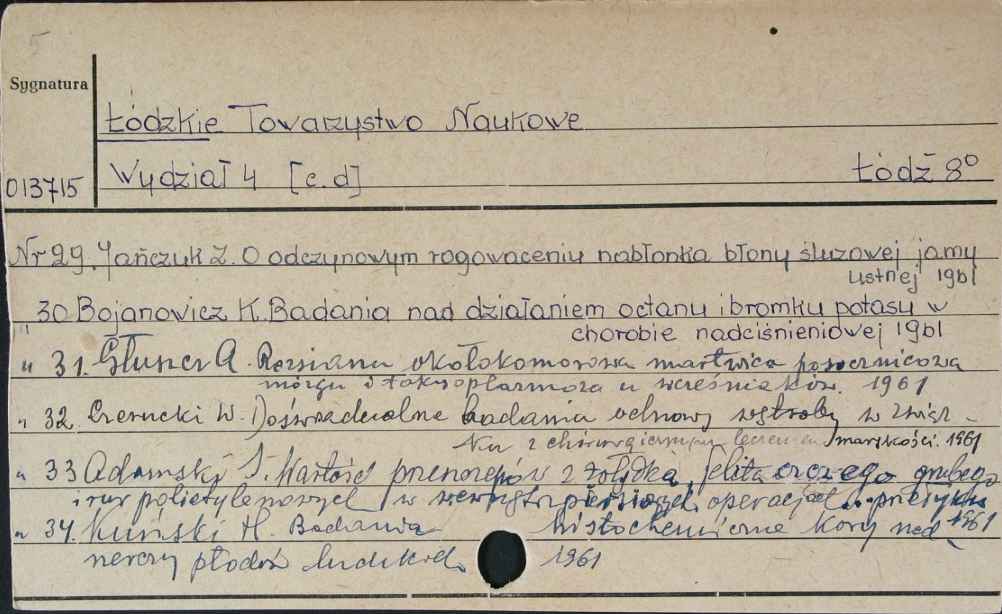 5
Sygnatura
Łódzkie Towarzystwo Naukowe
013715 Wydział 4 [c.d] Łódź 8°
Nr 29. Jańczuk Z. O odczynowym rogowaceniu nabłonka błony śluzowej jamy
ustnej 1961
" 30 Bojanowicz K. Badania nad działaniem octanu i bromku potasu w
chorobie nadciśnieniowej 1961
" 31. Głuszcz A. Rozsiana okołokomorowa martwica
mózgu i toksoplazmoza u wcześniaków. 1961
" 32. Czernicki W. Doświadczalne badania odnowy wątroby w związ-
ku z chirurgicznym leczeniem marskości. 1961
" 33 Adamski J. Wartość przeszczepów z żołądka, jelita czczego grubego
i rur polietylenowych w wewnątrzpiersiowych operacjach przełyku
1961
" 34. Kuński H. Badania histochemiczne kory nad-
nerczy płodów ludzkich. 1961